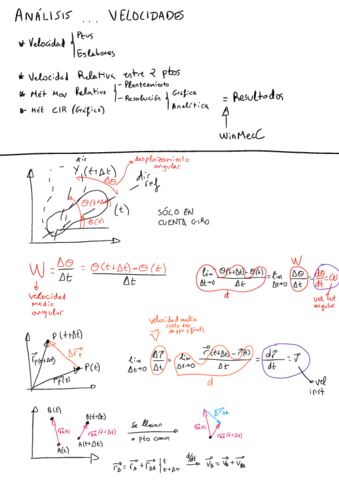 ANÁLISIS ... VELOCIDADES
* Velocidad { Ptos
Eslabones
* Velocidad Relativa entre 2 ptos
* Mét Mov Relativo { - Planteamiento
- Resolución { Gráfica
Analítica
= Resultados
* Mét CIR (Gráfico)
WinMecC
dir
(t+Δt)
desplazamiento
angular
Δθ
dir
ref
θ(t+Δt)
(t)
θ(t)
SÓLO EN
CUENTA GIRO
W = Δθ/Δt = θ(t+Δt) - θ(t) / Δt
velocidad
medio
angular
lim Δt→0 θ(t+Δt)-θ(t) / Δt = lim Δt→0 Δθ/Δt = dθ/dt
W
d
angular
velocidad media
P(t+Δt)
P(t)
lim Δt→0 Δr/Δt = lim Δt→0 r(t+Δt) - r(t) / Δt = dr/dt = v
d
vel
inst
B(t)
B(t+Δt)
A(t)
A(t+Δt)
Se llevan
a pto comun
r_B = r_A + r_BA | t
t+Δt
d/dt
v_B = v_A + v_BA